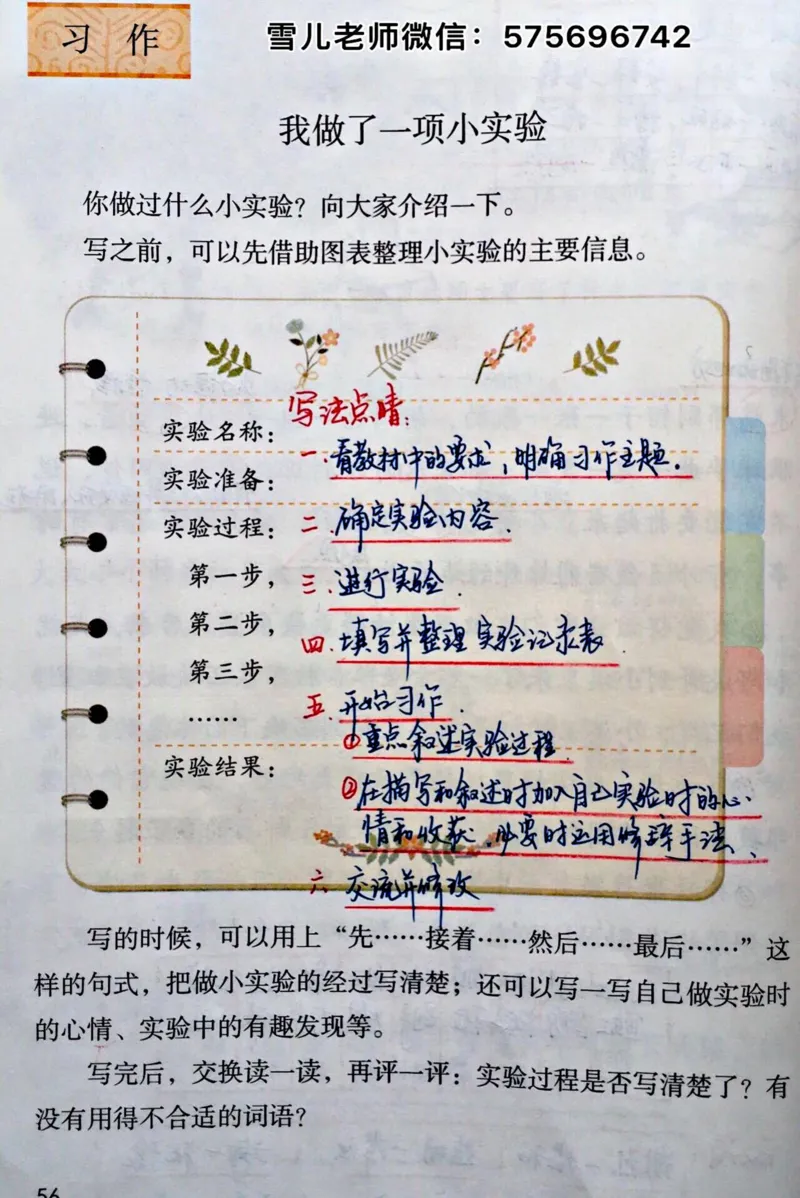 习 作
雪儿老师微信：575696742
我做了一项小实验
你做过什么小实验？向大家介绍一下。
写之前，可以先借助图表整理小实验的主要信息。
写法点晴
实验名称：
一.看教材中的要求，明确习作主题.
实验准备：
实验过程：
二.确定实验内容.
第一步，
三.进行实验.
第二步，
四.填写并整理实验记录表.
第三步，
五.开始习作.
……
①重点叙述实验过程.
实验结果：
②在描写和叙述时加入自己实验时的心
情和收获.必要时运用修辞手法、
六.交流并修改
写的时候，可以用上“先……接着……然后……最后……”这
样的句式，把做小实验的经过写清楚；还可以写一写自己做实验时
的心情、实验中的有趣发现等。
写完后，交换读一读，再评一评：实验过程是否写清楚了？有
没有用得不合适的词语？
56